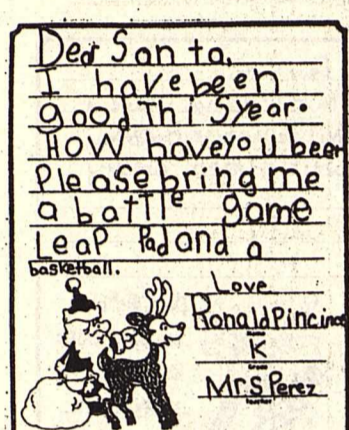 Dear Santa,
I have been
good this year.
How have you been
Please bring me
a battle game
Leap Pad and a
basketball.
Love
Ronald Pincince
K
Mrs Perez